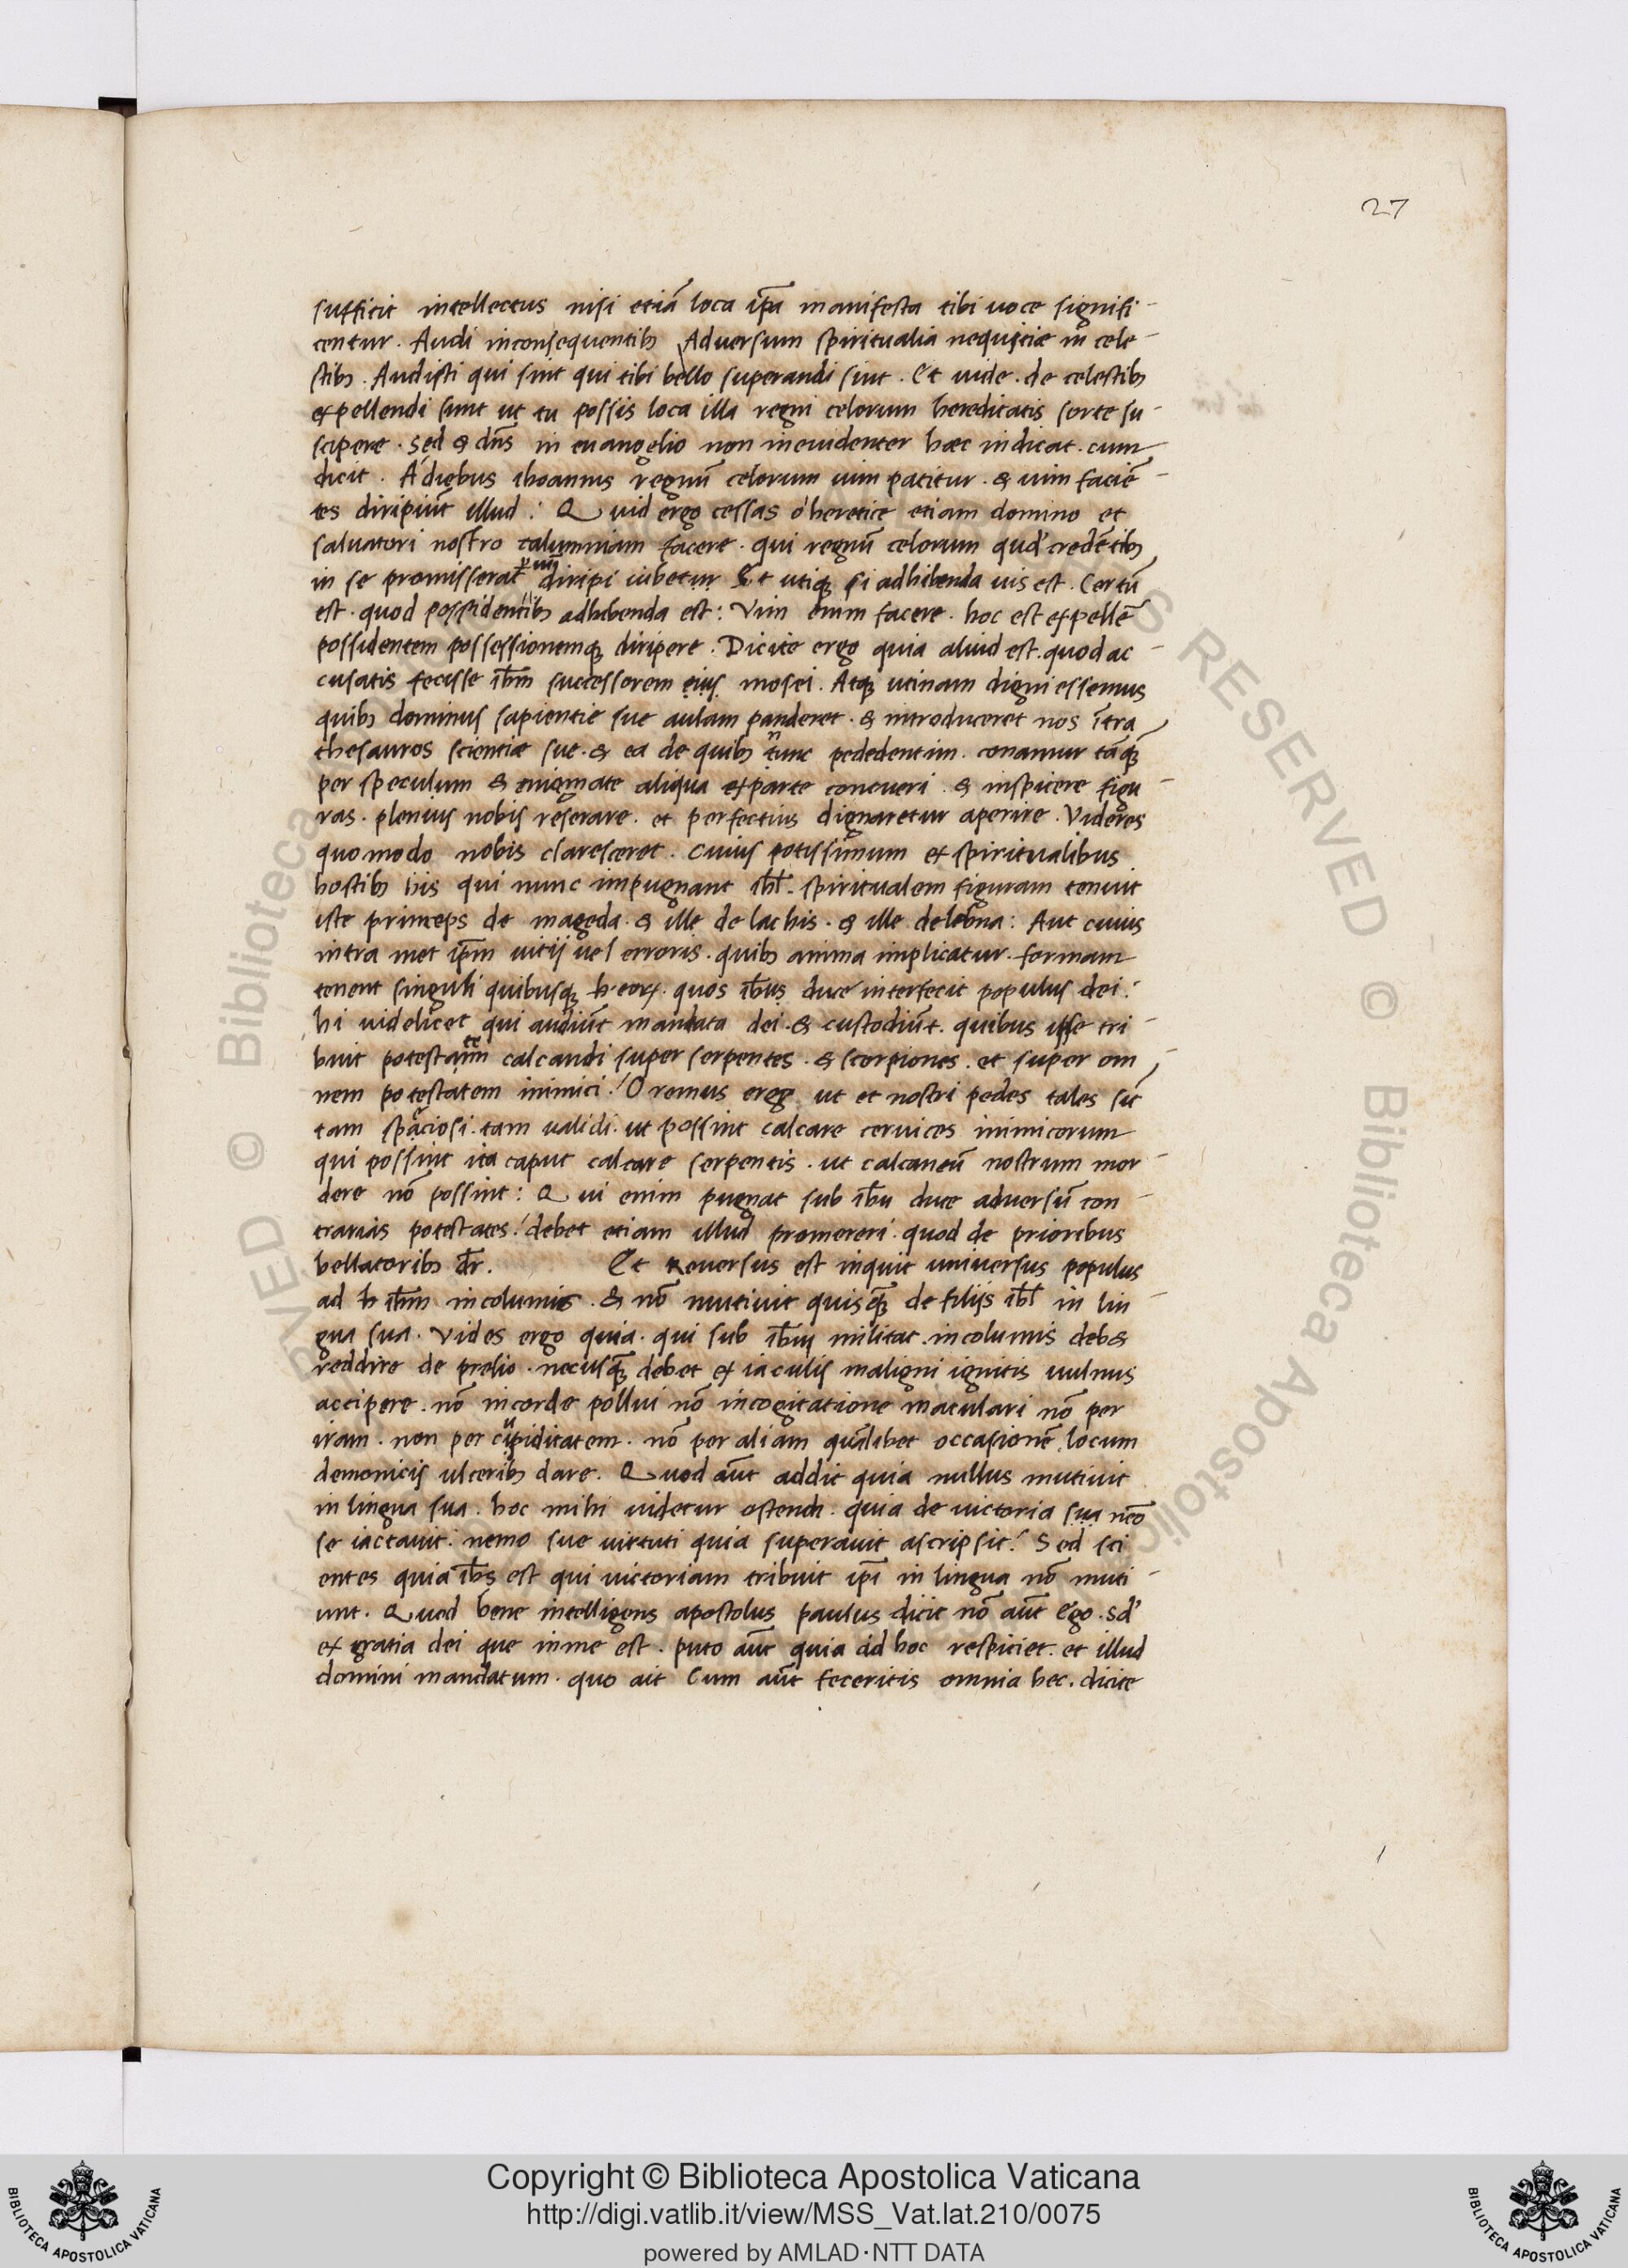 27
sufficit intellectus nisi etiã loca ip̃a manifesta tibi uoce signifi-
centur. Audi inconsequentib; Adversum spiritualia nequiciæ in cele-
stib;. Audisti qui sint qui tibi bello superandi sint. Et uide. de celestib;
expellendi sunt ut tu possis loca illa regni celorum hereditatis sorte su-
scipere. sed & dñs in euangelio non ineuidenter hæc indicat. cum
dicit. A diebus ihoannis regnũ celorum uim patitur. & uim faciẽ-
tes diripiũt illud: Quid ergo cessas o heretice etiam domino et
saluatori nostro calumniam facere. qui regnũ celorum qud' credẽtib;
in se promisserat p uĩ diripi iubetur Et utiq; si adhibenda uis est. Certũ
est. quod possidentib; adhibenda est: Vim enim facere. hoc est expellẽ
possidentem possessionemq; diripere. Dicite ergo quia aliud est. quod ac-
cusatis fecisse ih̃m successorem eius mosei. Atq; utinam digni essemus
quib; dominus sapientie sue aulam panderet. & introduceret nos ĩtra
thesauros scientiæ sue. & ea de quib; nunc pededentim. conamur tãq̃
per speculum & enigmate aliqua exparte conueri. & inspicere figu-
ras. plenius nobis reserare. et perfectius dignaretur aperire. Videres
quomodo nobis claresceret. cuius potissimum ex spiritualibus
hostib; his qui nunc impugnant ihl̃. spiritualem figuram tenuit
iste princeps de mageda. & ille de lachis. & ille delebna: Aut cuius
intra met ip̃m uitij uel erroris. quib; anima implicatur. formam
tenent singuli quibusq; h. eorꝝ. quos ih̃us duce interfecit populus dei:
hi uidelicet qui audiũt mandata dei. & custodiũt. quibus ipse tri
buit potestatem calcandi super serpentes. & scorpiones. et super om-
nem potestatem inimici! Oremus ergo ut et nostri pedes tales sĩt
tam spaciosi. tam ualidi. ut possint calcare ceruices inimicorum
qui possint ita caput calcare serpentis. ut calcaneũ nostrum mor-
dere nõ possint: Qui enim pugnat sub ih̃u duce aduersũ con-
trarias potestates! debet etiam illud promereri. quod de prioribus
bellatorib; dr̃. Et Reuersus est inquit universus populus
ad h ih̃m incolumis. & nõ mutiuit quisq̃ de filijs ihl̃ in lin-
gua sua. Vides ergo quia. qui sub ih̃u militat. incolumis deb&
reddire de prelio. necusq̃ debet ex iaculis maligni ignitis uulnus
accipere. nõ incorde pollui nõ incogitatione maculari nõ per
iram. non per cupiditatem. nõ per aliam quãlibet occasionẽ locum
demonicis ulcerib; dare. Quod aũt addit quia nullus mutiuit
in lingua sua. hoc mihi uidetur ostendi. quia de uictoria sua nẽo
se iactauit. nemo sue uirtuti quia superauit ascripsit! Sed sci
entes quia ih̃s est qui uictoriam tribuit ip̃i in lingua nõ muti-
unt. Quod bene intelligens apostolus paulus dicit nõ aũt Ego. sd'
ex gratia dei que inme est. puto aũt quia ad hoc respiciet. et illud
domini mandatum. quo ait Cum aũt feceritis omnia hec. dicite
Copyright © Biblioteca Apostolica Vaticana
http://digi.vatlib.it/view/MSS_Vat.lat.210/0075
powered by AMLAD·NTT DATA